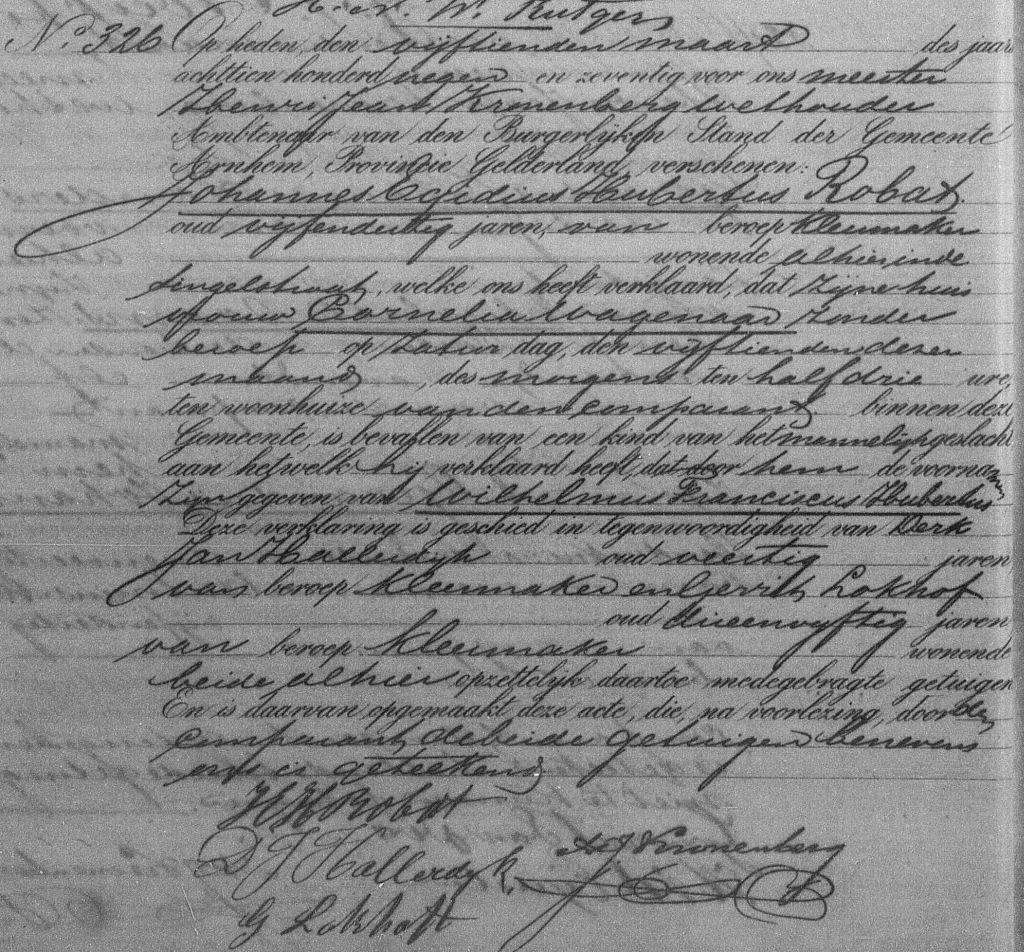 H. N. W. Rutgers
No. 326 Op heden, den vijftienden maart des jaars
achttien honderd negen en zeventig voor ons meester
Henri Jean Kronenberg wethouder
Ambtenaar van den Burgerlijken Stand der Gemeente
Arnhem, Provincie Gelderland, verschenen:
Johannes Egidius Hubertus Robat
oud vijfendertig jaren, van beroep kleermaker
wonende alhier in de
Singelstraat, welke ons heeft verklaard, dat zijne huis
vrouw Cornelia Wagenaar zonder
beroep op Zaturdag, den vijftienden dezer
maand, des morgens ten half drie ure,
ten woonhuize van den comparant binnen deze
Gemeente, is bevallen van een kind van het mannelijk geslacht
aan hetwelk hij verklaard heeft, dat door hem de voornamen
zijn gegeven van Wilhelmus Franciscus Hubertus
Deze verklaring is geschied in tegenwoordigheid van Derk
Jan Hallerdijk oud veertig jaren
van beroep kleermaker en Gerrit Lokhof
oud drieenvijftig jaren
van beroep kleermaker wonende
beide alhier opzettelijk daartoe medegebragte getuigen
En is daarvan opgemaakt deze acte, die, na voorlezing, door den
comparant, de beide getuigen benevens
ons is geteekend
H H Robat
D J Hallerdyk.
H J Kronenberg
G Lokhoff